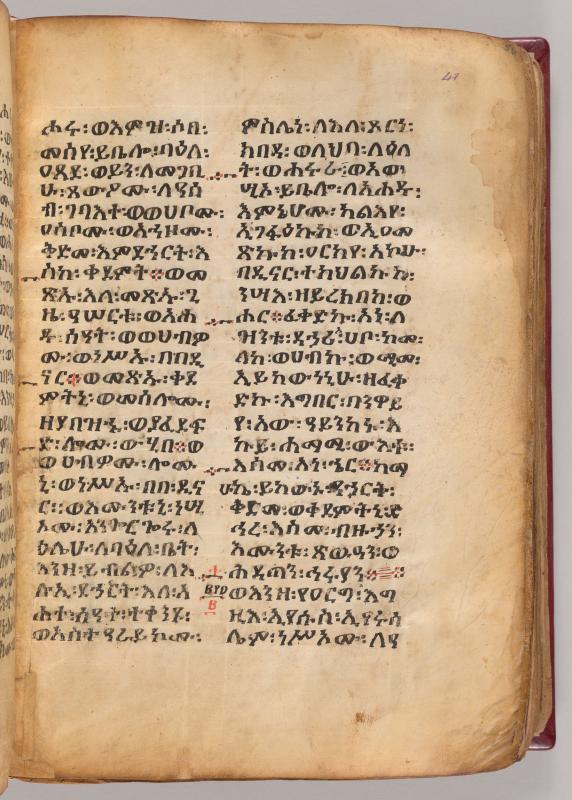 ሐሩ፡ወእምዝ፡ሶበ፡
መስየ፡ይቤሎ፡ባዕለ፡
ዐጸደ፡ወይን፡ለመገቢ
ሁ፡ጸውዖሙ፡ለሃሰ
ብ፡ገባእተ፡ወወሀቦሙ፡
ዐሰቦሙ፡ወእኂዞሙ፡
ቅድመ፡እምደኃርት፡እ
ስከ፡ቀደምት፨ወመ
ጽኡ፡እለ፡መጽኡ፡ጊ
ዜ፡ዓሠርቱ፡ወአሐ
ዱ፡ሰዓት፡ወወሀብዎ
ሙ፡ወነሥኡ፡በበዲ
ናር፨ወመጽኡ፡ቀደ
ምትኒ፡ወመሰሎሙ፡
ዘያበዝኁ፡ወያፈደፍ
ድ፡ሎሙ፡ውሂበ፨ወ
ወሀብዎሙ፡ሎሙ
ኒ፡ወነሥኡ፡በበ፡ዲና
ር፡፡ወእሙንቱ፡ነሢ
ኦሙ፡አንጐርጐሩ፡ለ
ዕሌሁ፡ለባዕለ፡ቤት፡
እንዘ፡ይብልዎ፡ለእ
ሉኒ፡ደኃርት፡እለ፡አ
ሐተ፡ሰዓተ፡ተቀንዩ፡
ወአስተዓራይኮሙ፡
ምስሌነ፡ለእለ፡ጾርነ፡
ክበዳ፡ወላህባ፡ለዕለ
ት፡ወሐሩራ፡ወአው
ሢአ፡ይቤሎ፡ለአሐዱ፡
እምኔሆሙ፡ካልእየ፡
ኢገፋዕኩከ፡ወኢዐመ
ጽኩከ፡ዐርክየ፡አኮሁ፡
በዲናር፡ተካህልኩከ፡
ንሣእ፡ዘይረክበከ፡ወ
ሐር፨ፈቀድኩ፡አነ፡ለ
ዝንቱ፡ደኃሪ፡ሀቦ፡ከመ፡
ላከ፡ወሀብኩ፡ወሚመ፡
ኢይከውነኒሁ፡ዘፈቀ
ድኩ፡እግበር፡በንዋይ
የ፡አው፡ዓይንከኑ፡እ
ኩይ፡ሐማሚ፡ውእቱ፡
እስመ፡አነ፡ኄር፨ከማ
ሁኬ፡ይከውኑ፡ደኃርት፡
ቅድመ፡ወቀደምትኒ፡ድ
ኅረ፡እስመ፡ብዙኃን፡
እሙንቱ፡ጽዉዓን፡ወ
ሕዳጣን፡ኅሩያን፨
ወእንዘ፡የዐርግ፡እግ
ዚእ፡ኢየሱስ፡ኢየሩሳ
ሌም፡ነሥኦሙ፡ለ፲